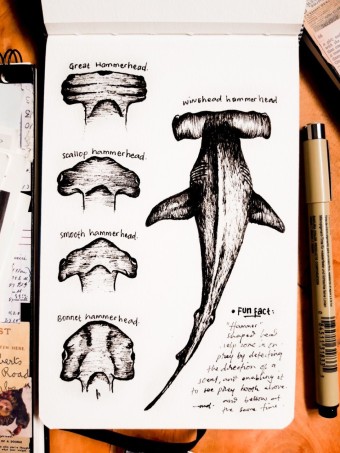 Great Hammerhead.
Winghead hammerhead
Scallop hammerhead.
Smooth hammerhead.
Bonnet hammerhead.
• Fun Fact:
"Hammer"
shaped head
help zone in on
prey by detecting
the direction of a
scent, and enabling it
to see prey both above
and below at
the same time.